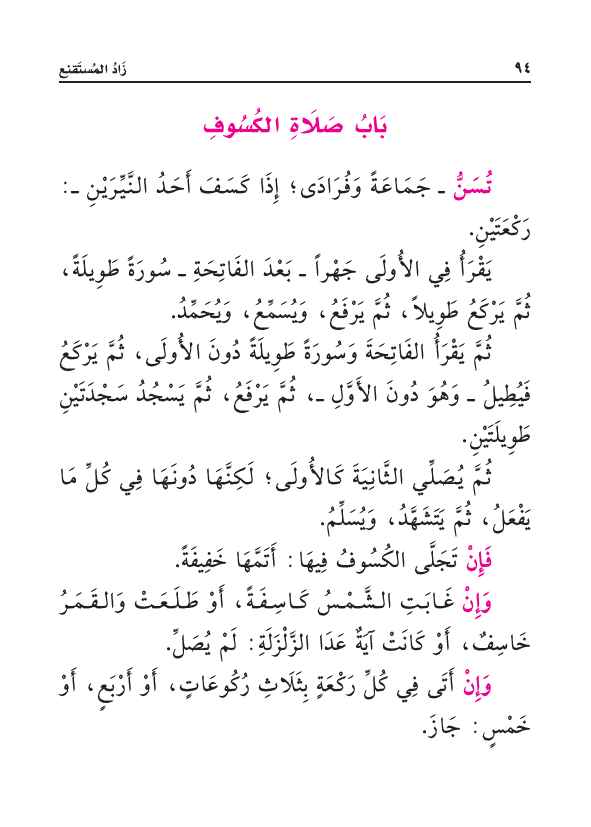 ٩٤ زَادُ المُستَقنِع
بَابُ صَلَاةِ الكُسُوفِ
تُسَنُّ ـ جَمَاعَةً وَفُرَادَى؛ إِذَا كَسَفَ أَحَدُ النَّيِّرَيْنِ ـ:
رَكْعَتَيْنِ.
يَقْرَأُ فِي الأُولَى جَهْراً ـ بَعْدَ الفَاتِحَةِ ـ سُورَةً طَوِيلَةً،
ثُمَّ يَرْكَعُ طَوِيلاً، ثُمَّ يَرْفَعُ، وَيُسَمِّعُ، وَيُحَمِّدُ.
ثُمَّ يَقْرَأُ الفَاتِحَةَ وَسُورَةً طَوِيلَةً دُونَ الأُولَى، ثُمَّ يَرْكَعُ
فَيُطِيلُ ـ وَهُوَ دُونَ الأَوَّلِ ـ، ثُمَّ يَرْفَعُ، ثُمَّ يَسْجُدُ سَجْدَتَيْنِ
طَوِيلَتَيْنِ.
ثُمَّ يُصَلِّي الثَّانِيَةَ كَالأُولَى؛ لَكِنَّهَا دُونَهَا فِي كُلِّ مَا
يَفْعَلُ، ثُمَّ يَتَشَهَّدُ، وَيُسَلِّمُ.
فَإِنْ تَجَلَّى الكُسُوفُ فِيهَا: أَتَمَّهَا خَفِيفَةً.
وَإِنْ غَابَتِ الشَّمْسُ كَاسِفَةً، أَوْ طَلَعَتْ وَالقَمَرُ
خَاسِفٌ، أَوْ كَانَتْ آيَةٌ عَدَا الزَّلْزَلَةِ: لَمْ يُصَلِّ.
وَإِنْ أَتَى فِي كُلِّ رَكْعَةٍ بِثَلَاثِ رُكُوعَاتٍ، أَوْ أَرْبَعٍ، أَوْ
خَمْسٍ: جَازَ.